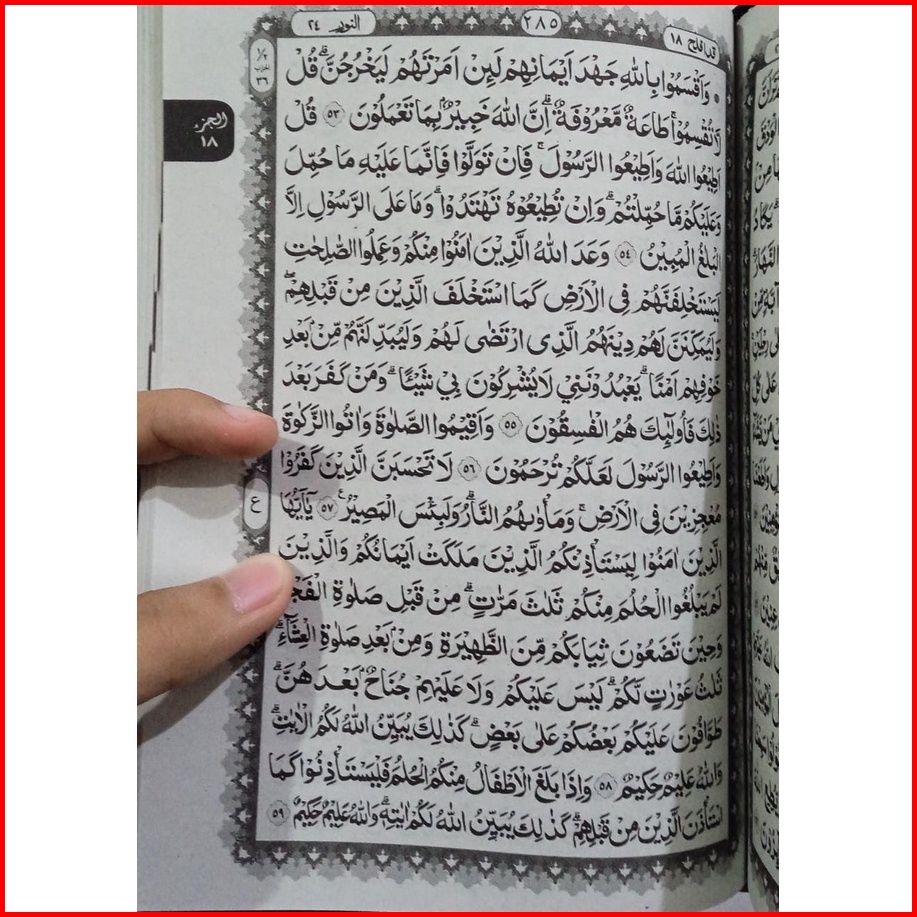 قد افلح ١٨
٢٨٥
النور ٢٤
الجزء
١٨
وَاَقْسَمُوْا بِاللّٰهِ جَهْدَ اَيْمَانِهِمْ لَىِٕنْ اَمَرْتَهُمْ لَيَخْرُجُنَّۗ قُلْ
لَّا تُقْسِمُوْاۚ طَاعَةٌ مَّعْرُوْفَةٌۗ اِنَّ اللّٰهَ خَبِيْرٌۢ بِمَا تَعْمَلُوْنَ ٥٣ قُلْ
اَطِيْعُوا اللّٰهَ وَاَطِيْعُوا الرَّسُوْلَۚ فَاِنْ تَوَلَّوْا فَاِنَّمَا عَلَيْهِ مَا حُمِّلَ
وَعَلَيْكُمْ مَّا حُمِّلْتُمْۗ وَاِنْ تُطِيْعُوْهُ تَهْتَدُوْاۗ وَمَا عَلَى الرَّسُوْلِ اِلَّا
الْبَلٰغُ الْمُبِيْنُ ٥٤ وَعَدَ اللّٰهُ الَّذِيْنَ اٰمَنُوْا مِنْكُمْ وَعَمِلُوا الصّٰلِحٰتِ
لَيَسْتَخْلِفَنَّهُمْ فِى الْاَرْضِ كَمَا اسْتَخْلَفَ الَّذِيْنَ مِنْ قَبْلِهِمْۖ
وَلَيُمَكِّنَنَّ لَهُمْ دِيْنَهُمُ الَّذِى ارْتَضٰى لَهُمْ وَلَيُبَدِّلَنَّهُمْ مِّنْۢ بَعْدِ
خَوْفِهِمْ اَمْنًاۗ يَعْبُدُوْنَنِيْ لَا يُشْرِكُوْنَ بِيْ شَيْـًٔاۗ وَمَنْ كَفَرَ بَعْدَ
ذٰلِكَ فَاُولٰۤىِٕكَ هُمُ الْفٰسِقُوْنَ ٥٥ وَاَقِيْمُوا الصَّلٰوةَ وَاٰتُوا الزَّكٰوةَ
وَاَطِيْعُوا الرَّسُوْلَ لَعَلَّكُمْ تُرْحَمُوْنَ ٥٦ لَا تَحْسَبَنَّ الَّذِيْنَ كَفَرُوْا
مُعْجِزِيْنَ فِى الْاَرْضِۚ وَمَأْوٰىهُمُ النَّارُۗ وَلَبِئْسَ الْمَصِيْرُ ٥٧ ع يٰٓاَيُّهَا
الَّذِيْنَ اٰمَنُوْا لِيَسْتَأْذِنْكُمُ الَّذِيْنَ مَلَكَتْ اَيْمَانُكُمْ وَالَّذِيْنَ
لَمْ يَبْلُغُوا الْحُلُمَ مِنْكُمْ ثَلٰثَ مَرّٰتٍۗ مِنْ قَبْلِ صَلٰوةِ الْفَجْرِ
وَحِيْنَ تَضَعُوْنَ ثِيَابَكُمْ مِّنَ الظَّهِيْرَةِ وَمِنْۢ بَعْدِ صَلٰوةِ الْعِشَاۤءِۗ
ثَلٰثُ عَوْرٰتٍ لَّكُمْۗ لَيْسَ عَلَيْكُمْ وَلَا عَلَيْهِمْ جُنَاحٌۢ بَعْدَهُنَّۗ
طَوَّافُوْنَ عَلَيْكُمْ بَعْضُكُمْ عَلٰى بَعْضٍۗ كَذٰلِكَ يُبَيِّنُ اللّٰهُ لَكُمُ الْاٰيٰتِۗ
وَاللّٰهُ عَلِيْمٌ حَكِيْمٌ ٥٨ وَاِذَا بَلَغَ الْاَطْفَالُ مِنْكُمُ الْحُلُمَ فَلْيَسْتَأْذِنُوْا كَمَا
اسْتَأْذَنَ الَّذِيْنَ مِنْ قَبْلِهِمْۗ كَذٰلِكَ يُبَيِّنُ اللّٰهُ لَكُمْ اٰيٰتِهٖۗ وَاللّٰهُ عَلِيْمٌ حَكِيْمٌ ٥٩